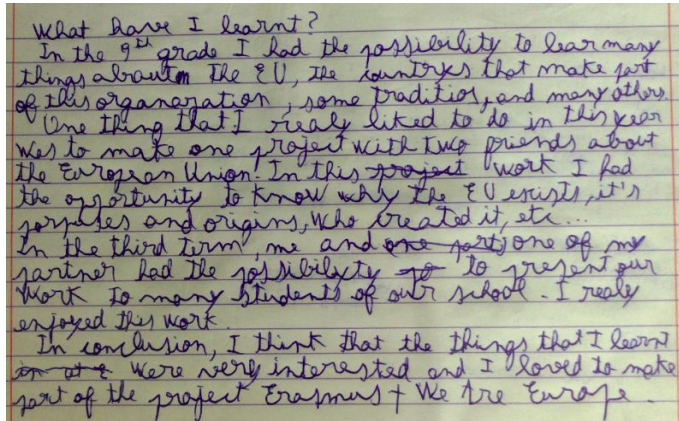 What have I learnt?
In the 9th grade I had the possibility to lear many
things about The EU, the countrys that make part
of this organazation, some traditios, and many others.
One thing that I realy liked to do in this year
was to make one project with two friends about
the European Union. In this project work I had
the opportunity to know why the EU exists, it's
porpuses and origins, who created it, etc...
In the third term, me and one part one of my
partner had the possibility to to present our
work to many students of our school. I realy
enjoyed this work.
In conclusion, I think that the things that I learnt
were very interested and I loved to make
part of the project Erasmus + We Are Europe.